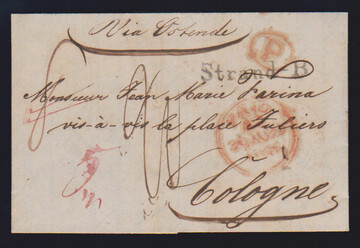 Via Ostende
P
Strand B
Monsieur Jean Marie Farina
vis-à-vis la place Juliers
Cologne